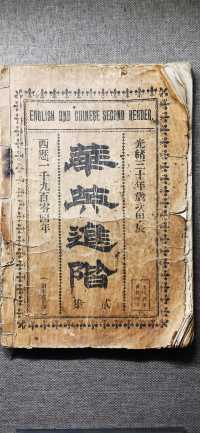 ENGLISH AND CHINESE SECOND READER
光緒三十年歲次甲辰
華英進階
貳集
西歷一千九百零四年